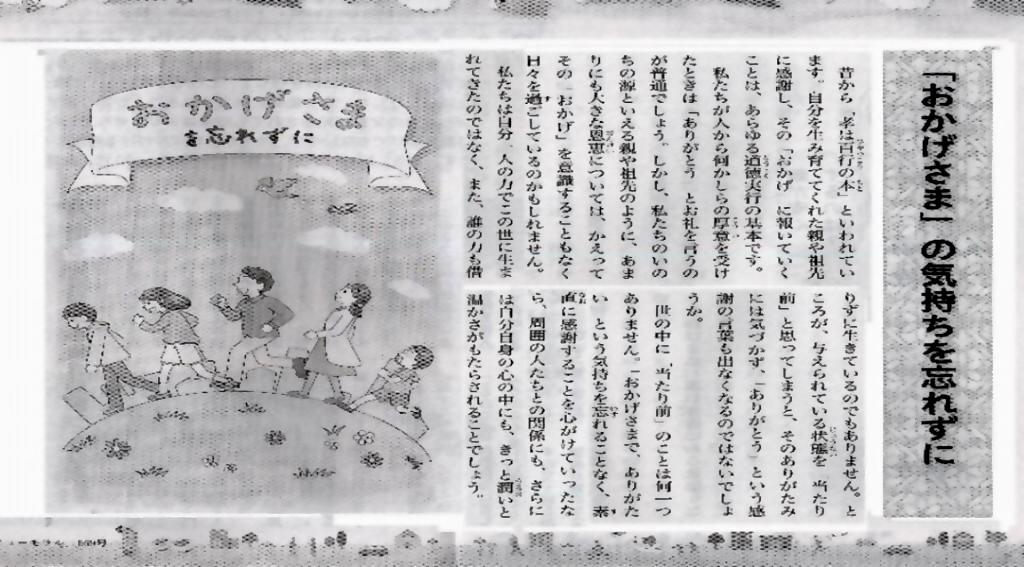 「おかげさま」の気持ちを忘れずに
昔から「孝は百行の本」といわれてい
ます。自分を生み育ててくれた親や祖先
に感謝し、その「おかげ」に報いていく
ことは、あらゆる道徳実行の基本です。
私たちが人から何かしらの厚意を受け
たときは「ありがとう」とお礼を言うの
が普通でしょう。しかし、私たちのいの
ちの源といえる親や祖先のように、あま
りにも大きな恩恵については、かえって
その「おかげ」を意識することもなく
日々を過ごしているのかもしれません。
私たちは自分一人の力でこの世に生ま
れてきたのではなく、また、誰の力も借
りずに生きているのでもありません。と
ころが、与えられている状態を「当たり
前」と思ってしまうと、そのありがたみ
には気づかず、「ありがとう」という感
謝の言葉も出なくなるのではないでしょ
うか。
世の中に「当たり前」のことは何一つ
ありません。「おかげさまで、ありがた
い」という気持ちを忘れることなく、素
直に感謝することを心がけていったな
ら、周囲の人たちとの関係にも、さらに
は自分自身の心の中にも、きっと潤いと
温かさがもたらされることでしょう。
おかげさま
を忘れずに